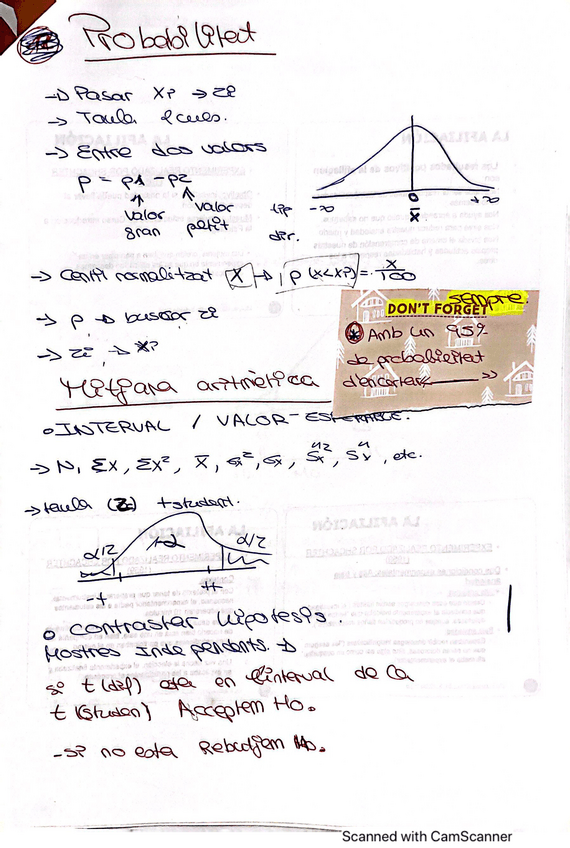 Probabilitat
→ Pasar Xi → zi
→ Taula 2 cues.
→ Entre dos valors
p = p1 - p2
valor gran
valor petit
tip
dir.
-∞ 0 +∞
x̄
→ Centil normalitzat X → p (x<xi) = x/100
→ p → buscar zi
→ zi → xi
DON'T FORGET
sempre.
* Amb un 95%
de probabilitat
d'encertar →>
Mitjana aritmètica
o INTERVAL / VALOR ESPERABLE.
→ N, Σx, Σx², x̄,
etc.
→ taula (z) t student.
α/2 1-α α/2
-t +t
o contrastar Hipotesis.
Mostres Independents. →
si t (dif) esta en l'interval de la
t (studen) Acceptem Ho.
- si no esta Rebutjem Ho.
Scanned with CamScanner